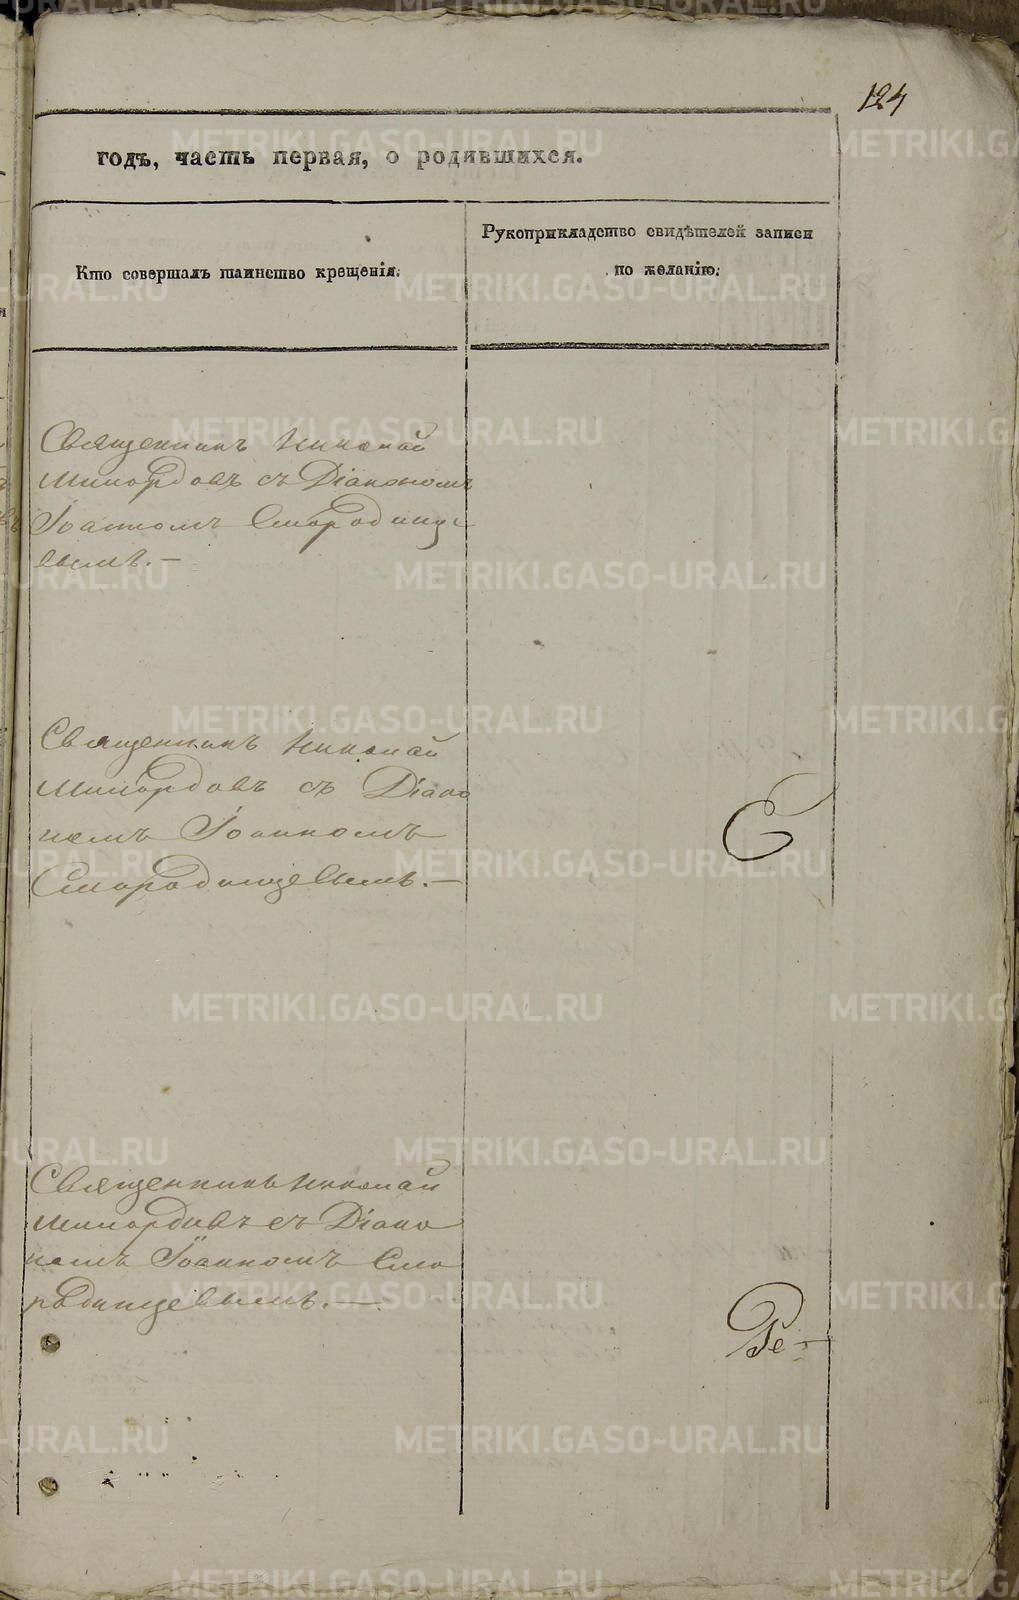 184
годъ, часть первая, о родившихся.
Кто совершалъ таинство крещенія.
Рукоприкладство свидѣтелей записи
по желанію.
Священникъ Николай
Милордовъ съ Діакономъ
Іоанномъ Смородинце
вымъ.—
Священникъ Николай
Милордовъ съ Діако
номъ Іоанномъ
Смородинцевымъ.—
Священникъ Николай
Милордовъ съ Діако
номъ Іоанномъ Смо
родинцевымъ.—
Ре-
METRIKI.GASO-URAL.RU